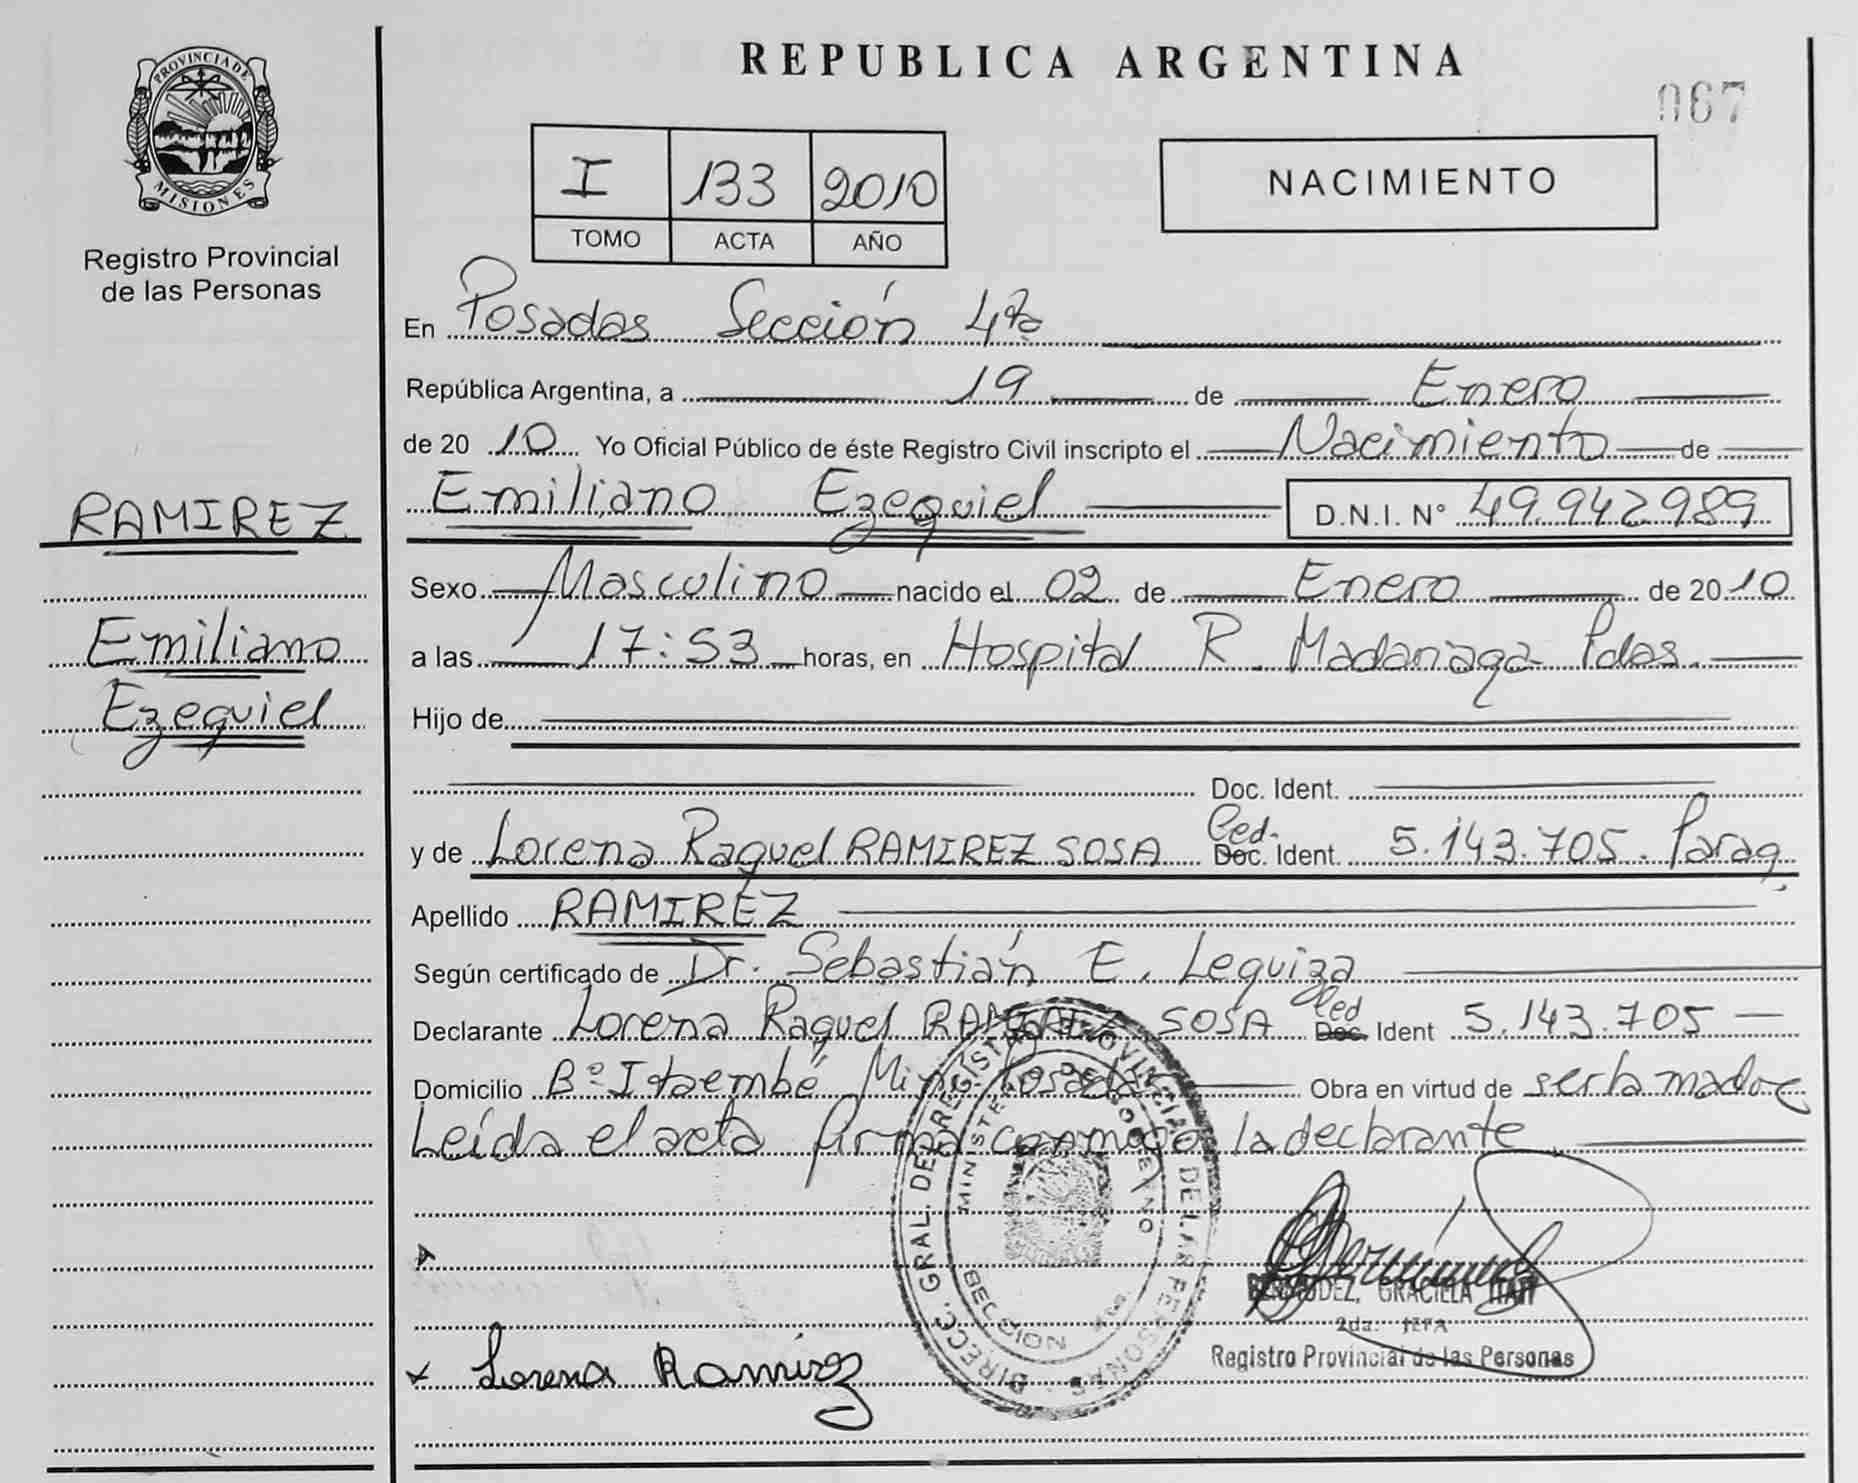 REPUBLICA ARGENTINA
067
PROVINCIA DE
MISIONES
Registro Provincial
de las Personas
I 133 2010
TOMO ACTA AÑO
NACIMIENTO
En Posadas Sección 4ta
República Argentina, a 19 de Enero
de 2010 Yo Oficial Público de éste Registro Civil inscripto el Nacimiento de
RAMIREZ
Emiliano Ezequiel D.N.I. N° 49.942989
Sexo Masculino nacido el 02 de Enero de 2010
Emiliano
a las 17:53 horas, en Hospital R. Madariaga Pdas.
Ezequiel
Hijo de
Doc. Ident.
y de Lorena Raquel RAMIREZ SOSA Ced. Doc. Ident. 5.143.705. Parag.
Apellido RAMIREZ
Según certificado de Dr. Sebastián E. Leguiza
Declarante Lorena Raquel RAMIREZ SOSA Ced Doc. Ident 5.143.705
Domicilio B° Itaembé Miní Posadas Obra en virtud de ser la madre
Leída el acta firma conmigo la declarante
DIRECC. GRAL. DEL REGISTRO PROVINCIAL DE LAS PERSONAS
MINISTERIO DE GOBIERNO
SECCION 4ta.
BERMUDEZ, GRACIELA ITATI
2da. JEFA
Registro Provincial de las Personas
x Lorena Ramirez